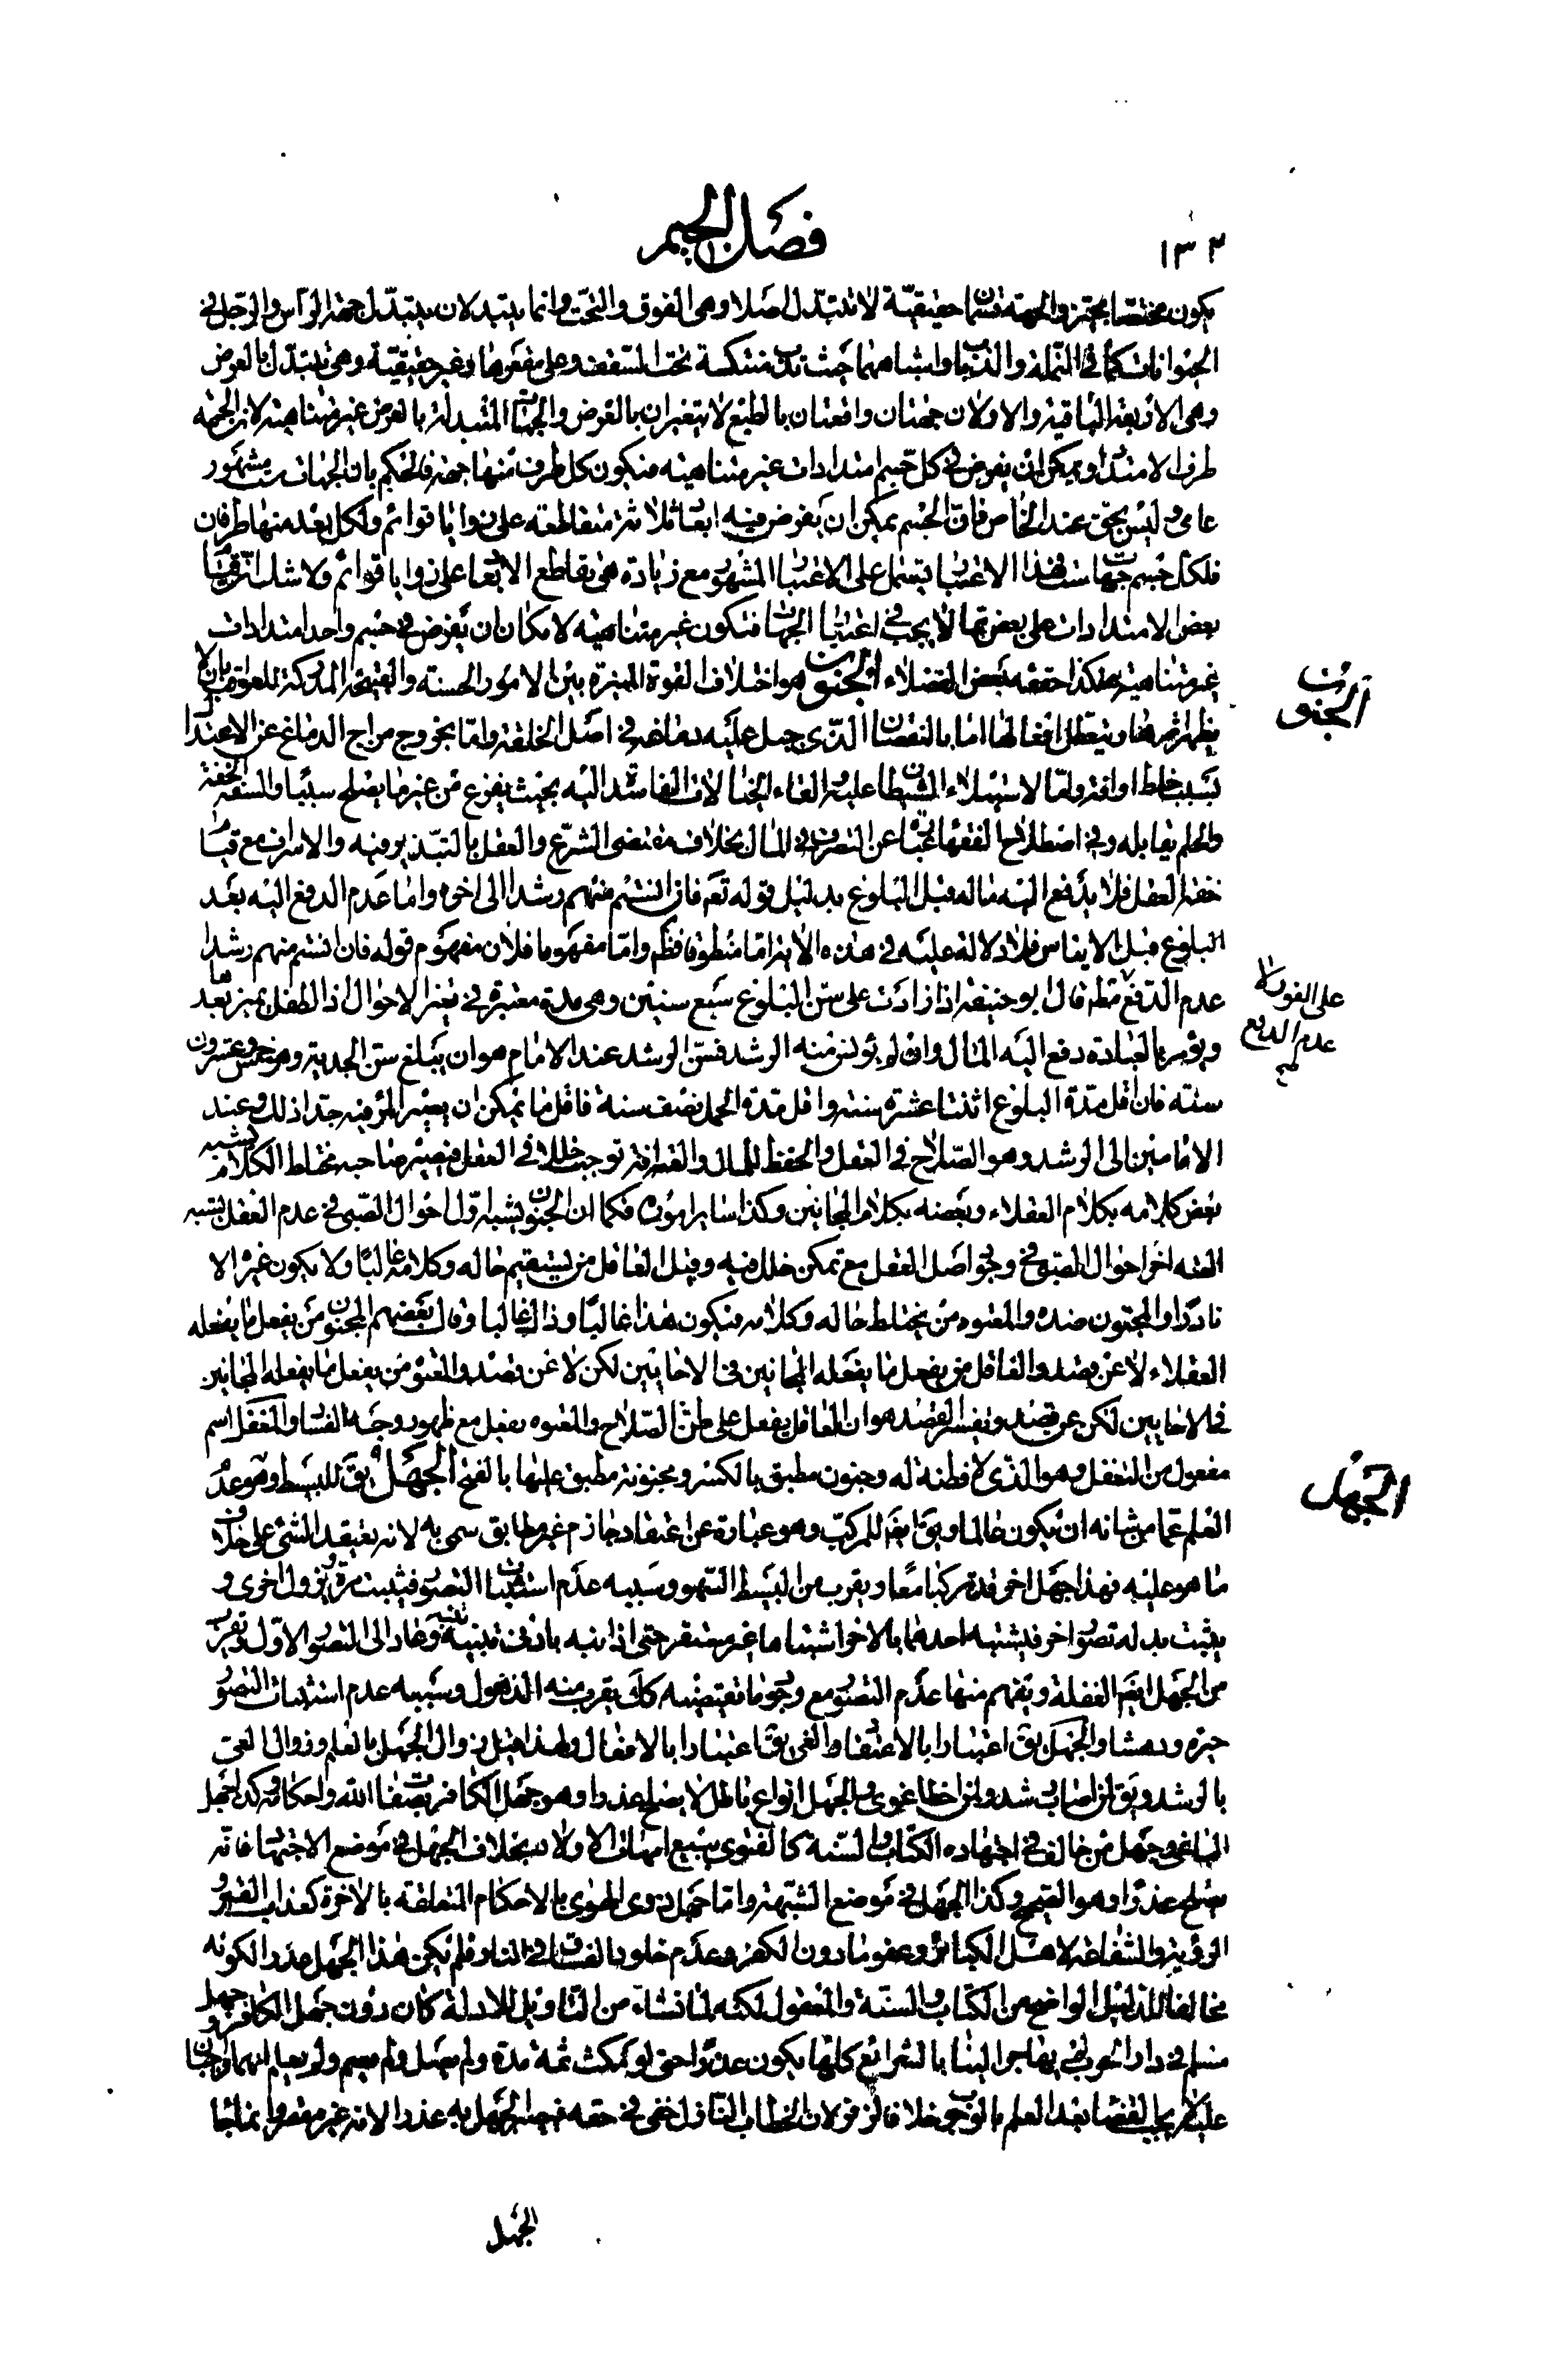 ١٣٢
فصل الجيم
يكون مختصا بجهة والجهة قسمان حقيقية لا تتبدل اصلا وهي الفوق والتحت وانما يتبدلان بتبدل جهة الرأس والرجل في
الحيوانات كما في النملة والذباب واشباههما حيث تدب منتكسة تحت السقف وعلى مقعرها وغير حقيقية وهي تتبدل بالعرض
وهي الاربعة الباقية والاولان جهتان واقعتان بالطبع لا يتغيران بالعرض والجهات المتبدلة بالعرض غير متناهية لان الجهة
طرف الامتداد ويمكن ان يفرض في كل جسم امتدادات غير متناهية فيكون كل طرف منها جهة فالحكم بان الجهات ست مشهور
عامي وليس بحق عند الخاص فان الجسم يمكن ان يفرض فيه ابعاد ثلاثة متقاطعة على زوايا قوائم ولكل بعد منها طرفان
فلكل جسم جهات ست فهذا الاعتبار يشتمل على الاعتبار المشهور مع زيادة هي تقاطع الابعاد على زوايا قوائم ولا شك ان قيام
بعض الامتدادات على بعض مما لا يجب في اعتبار الجهات فتكون غير متناهية لامكان ان يفرض في جسم واحد امتدادات
غير متناهية هكذا حققه بعض الفضلاء الجنون هو اختلاف القوة المميزة بين الامور الحسنة والقبيحة المدركة للعواقب بان لا
يظهر اثرها ويتعطل افعالها اما بالنقصان الذي جبل عليه دماغه في اصل الخلقة واما بخروج مزاج الدماغ عن الاعتدال
بسبب خلط او آفة واما لاستيلاء الشيطان عليه والقاء الخيالات الفاسدة اليه بحيث يفزع من غير ما يصلح سببا والسفه الخفة
والحلم يقابله وفي اصطلاح الفقهاء عبارة عن التصرف في المال بخلاف مقتضى الشرع والعقل بالتبذير فيه والاسراف مع قيام
خفة العقل فلا يدفع اليه ماله قبل البلوغ بدليل قوله تعم فان آنستم منهم رشدا الى آخره واما عدم الدفع اليه بعد
البلوغ قبل الايناس فلا دلالة عليه في هذه الآية اما منطوقا فظم واما مفهوما فلان مفهوم قوله فان آنستم منهم رشدا
عدم الدفع مطم قال ابو حنيفة اذا زادت على سن البلوغ سبع سنين وهي مدة معتبرة في تغير الاحوال اذ الطفل يميز بعدها
ويؤمر بالعبادة دفع اليه المال وان لم يؤنس منه الرشد فسن الرشد عند الامام هو ان يبلغ سن الجدية وهو خمس وعشرون
سنة فان اقل مدة البلوغ اثنتا عشرة سنة واقل مدة الحمل نصف سنة فاقل ما يمكن ان يصير المرء فيه جدا ذلك وعند
الامامين الى الرشد وهو الصلاح في العقل والحفظ للمال والعته آفة توجب خللا في العقل فيصير صاحبه مختلط الكلام يشبه
بعض كلامه بكلام العقلاء وبعضه بكلام المجانين وكذا ساير اموره فكما ان الجنون يشبه اول احوال الصبي في عدم العقل يشبه
العته آخر احوال الصبي في وجود اصل العقل مع تمكن خلل فيه وقيل العاقل من يستقيم حاله وكلامه غالبا ولا يكون غيره الا
نادرا والمجنون ضده والمعتوه من يختلط حاله وكلامه فيكون هذا غالبا وذاك غالبا وقال بعضهم المجنون من يفعل ما يفعله
العقلاء لا عن قصد والعاقل من يفعل ما يفعله المجانين في الاحايين لكن لا عن قصد والمعتوه من يفعل ما يفعله المجانين
في الاحايين لكن عن قصد وتفسير القصد هو ان العاقل يفعل على ظن الصلاح والمعتوه يفعل مع ظهور وجه الفساد والمغفل اسم
مفعول من التغفل وهو الذي لا فطنة له وجنون مطبق بالكسر ومجنونة مطبق عليها بالفتح الجهل يق للبسيط وهو عدم
العلم عما من شانه ان يكون عالما ويق ايضم للمركب وهو عبارة عن اعتقاد جازم غير مطابق سمي به لانه يعتقد الشئ على خلاف
ما هو عليه فهذا جهل آخر قد تركبا معا ويقرب من البسيط السهو وسببه عدم استثبات التصور فيثبت مرة ويزول اخرى و
يثبت بدله تصور آخر فيشتبه احدهما بالآخر اشتباها غير مستقر حتى اذا نبه بادنى تنبيه تنبه وعاد الى التصور الاول ويقرب
من الجهل ايضم الغفلة ويفهم منها عدم التصور مع وجود ما يقتضيه كك يقرب منه الذهول وسببه عدم استثبات التصور
حيرة ودهشا والجهل يق اعتبارا بالاعتقاد والغي يق اعتبارا بالافعال ولهذا قيل زوال الجهل بالعلم وزوال الغي
بالرشد ويق لمن اصاب رشد ولمن اخطا غوى والجهل انواع باطل لا يصلح عذرا وهو جهل الكافر بصفات الله واحكامه وكذا جهل
الباغي وجهل من خالف في اجتهاده الكتاب والسنة كالفتوى ببيع امهات الاولاد بخلاف الجهل في موضع الاجتهاد فانه
يصلح عذرا وهو الصحيح وكذا الجهل في موضع الشبهة واما جهل ذوي الهوى بالاحكام المتعلقة بالآخرة كعذاب القبر و
الرؤية والشفاعة لاهل الكبائر وعفو ما دون الكفر وعدم خلود الفساق في النار فلم يكن هذا الجهل عذرا لكونه
مخالفا للدليل الواضح من الكتاب والسنة والمعقول لكنه لما نشاء من التاويل للادلة كان دون جهل الكافر وجهل
مسلم في دار الحرب لم يهاجر الينا بالشرائع كلها يكون عذرا حتى لو مكث ثمة مدة ولم يصل ولم يصم ولم يعلم انهما واجبان
عليه لا يجب القضاء بعد العلم بالوجوب خلافا لزفر لان الخطاب النازل خفي في حقه فيصير الجهل به عذرا لانه غير مقصر وانما جاء
الجهل
الجنون
على الفور لا
عدم الدفع
الجهل